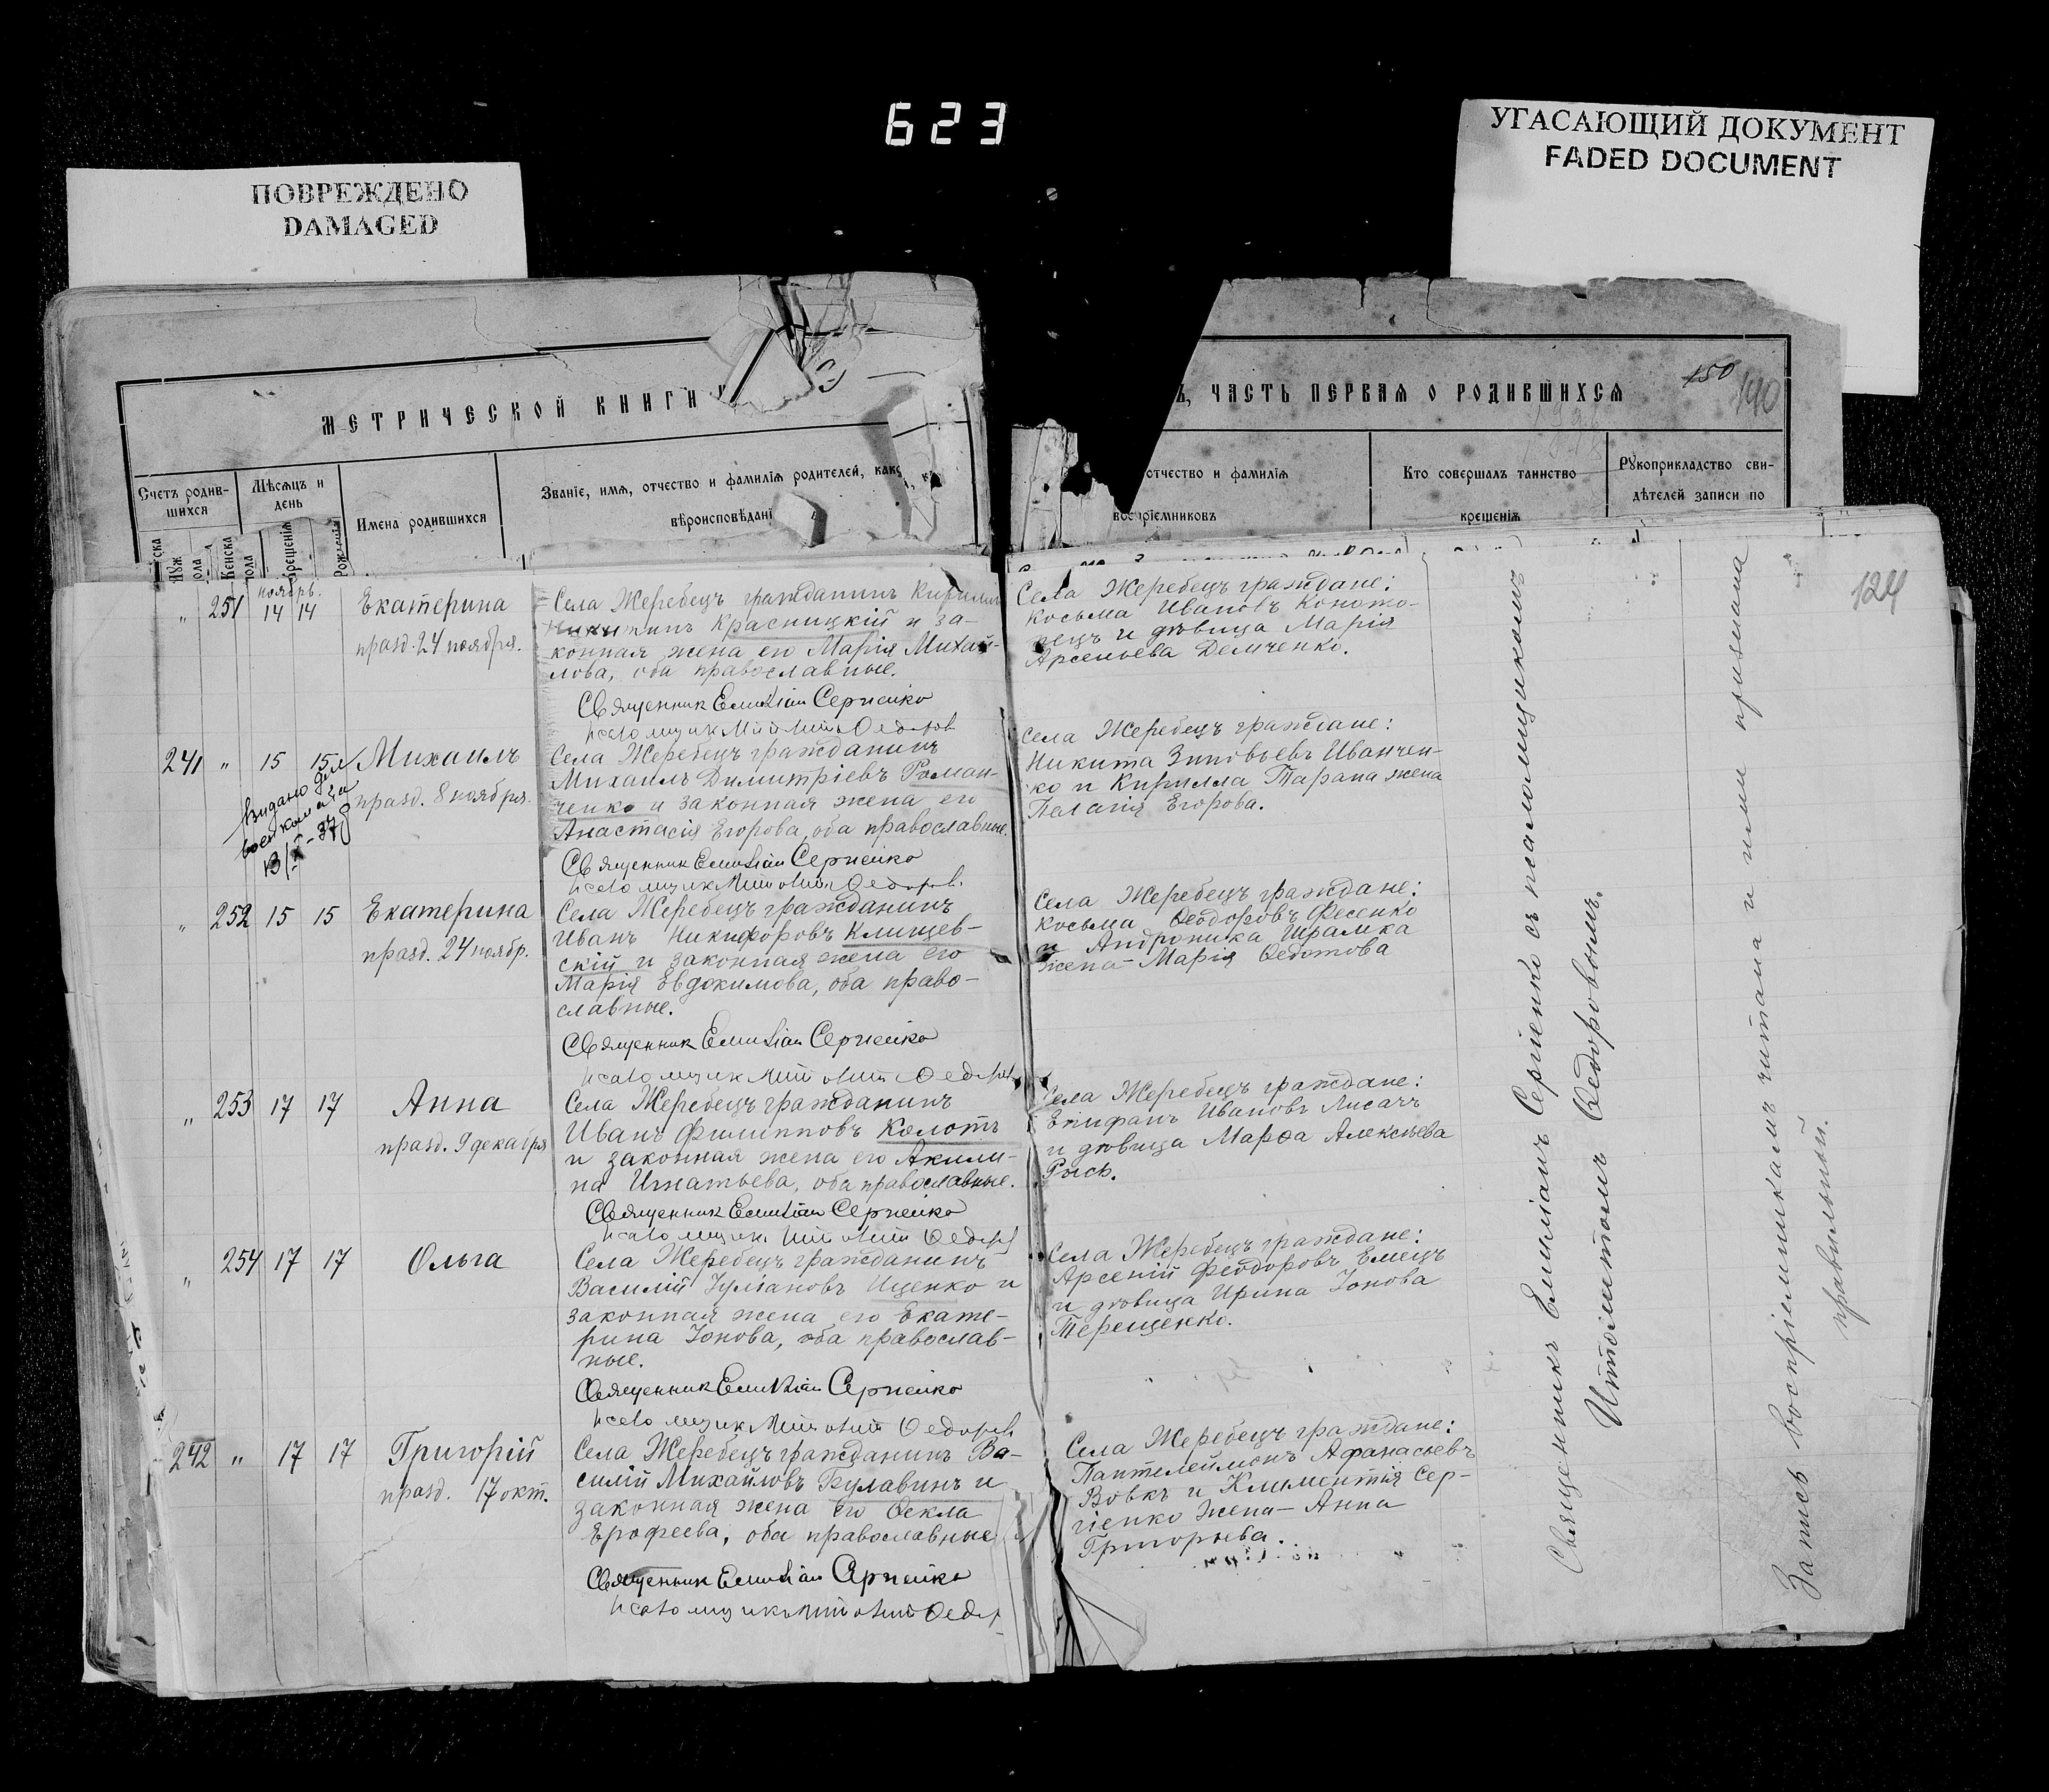 623
ПОВРЕЖДЕНО
DAMAGED
УГАСАЮЩИЙ ДОКУМЕНТ
FADED DOCUMENT
МЕТРИЧЕСКОЙ КНИГИ
ЧАСТЬ ПЕРВАЯ О РОДИВШИХСЯ
150
140
124
Счетъ родив-
шихся
Мѣсяцъ и
день
Имена родившихся
Званіе, имя, отчество и фамилія родителей, како
вѣроисповѣдані
отчество и фамилія
воспріемниковъ
Кто совершалъ таинство
крещенія
Рукоприкладство сви-
дѣтелей записи по
ноябрь.
" 251 14 14 Екатерина
празд. 24 ноября.
Села Жеребецъ гражданинъ Кирилл
Никитинъ Красницкій и за-
конная жена его Марія Михай-
лова, оба православные.
Священник Емиліан Сергиенко
Псаломщик Федоров
Села Жеребецъ граждане:
Косьма Ивановъ Коното-
пецъ и дѣвица Марія
Арсеньева Демченко.
241 " 15 15 Михаилъ
празд. 8 ноября.
Видано для
военкомата
Села Жеребецъ гражданинъ
Михаилъ Димитріевъ Роман-
ченко и законная жена его
Анастасія Егорова, оба православные.
Священник Емиліан Сергиенко
Псаломщик Федоров.
Села Жеребецъ граждане:
Никита Зиновьевъ Иванчен-
ко и Кирилла Тарана жена
Палагія Егорова.
" 252 15 15 Екатерина
празд. 24 ноябр.
Села Жеребецъ гражданинъ
Иванъ Никифоровъ Клищев-
скій и законная жена его
Марія Евдокимова, оба право-
славные.
Священник Емиліан Сергиенко
Псаломщик Федоров
Села Жеребецъ граждане:
Косьма Ѳеодоровъ Фесенко
и Андроника Шрамка
жена Марія Ѳедотова
" 253 17 17 Анна
празд. 9 декабря
Села Жеребецъ гражданинъ
Иванъ Филипповъ Колотъ
и законная жена его Акили-
на Игнатьева, оба православные.
Священник Емиліан Сергиенко
Псаломщик Федоров
Села Жеребецъ граждане:
Епифанъ Ивановъ Лисачъ
и дѣвица Марѳа Алексѣева
Рысь.
" 254 17 17 Ольга
Села Жеребецъ гражданинъ
Василій Іуліановъ Ищенко и
законная жена его Екате-
рина Іонова, оба православ-
ные.
Священник Емиліан Сергиенко
Псаломщик Федоров
Села Жеребецъ граждане:
Арсеній Ѳеодоровъ Емецъ
и дѣвица Ирина Іонова
Терещенко.
242 " 17 17 Григорій
празд. 17 окт.
Села Жеребецъ гражданинъ Ва-
силій Михайловъ Булавинъ и
законная жена его Ѳекла
Ерофеева, оба православные
Священник Емиліан Сергиенко
Псаломщик Федор
Села Жеребецъ граждане:
Пантелеймонъ Афанасьевъ
Вовкъ и Климентія Сер-
гіенко жена - Анна
Григорьева.
Священникъ Емиліанъ Сергіенко съ псаломщикомъ
Ипполитомъ Ѳедоровымъ.
Запись воспріемникамъ читана и ими признана
правильной.